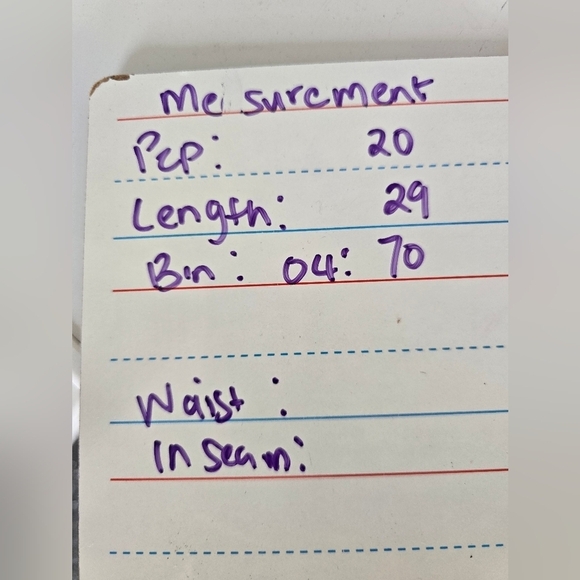 Mesurement
Pep: 20
Length: 29
Bin: 04: 70
Waist:
Inseam: